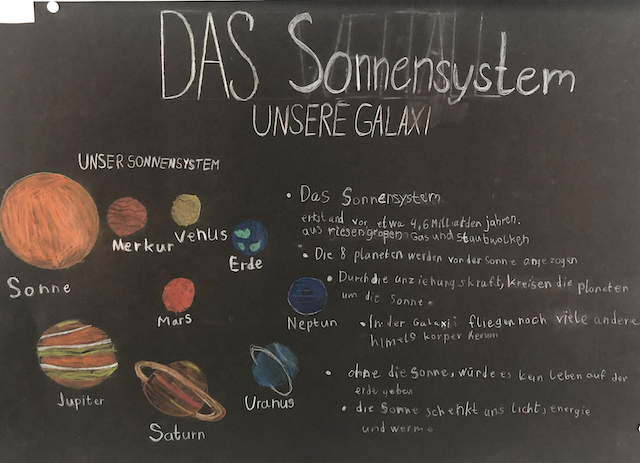 DAS Sonnensystem
UNSERE GALAXI
UNSER SONNENSYSTEM
Sonne
Merkur
Venus
Erde
Mars
Neptun
Jupiter
Saturn
Uranus
• Das Sonnensystem
entstand vor etwa 4,6 Milliarden jahren.
aus riesengroßen Gas und Staubwolken
• Die 8 planeten werden von der Sonne angezogen
• Durch die anziehungskraft, kreisen die planeten
um die Sonne.
• In der Galaxi fliegen noch viele andere
himels korper herum
• ohne die Sonne, würde es kein Leben auf der
erde geben
• die Sonne schenkt uns licht, energie
und werme